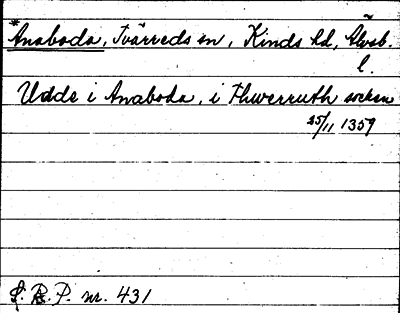 *Anaboda, Tvärreds sn, Kinds hd, Älvsb.
l.
Udde i Anaboda, i Thwerruth socken
25/11 1359
S. R. P. nr. 431